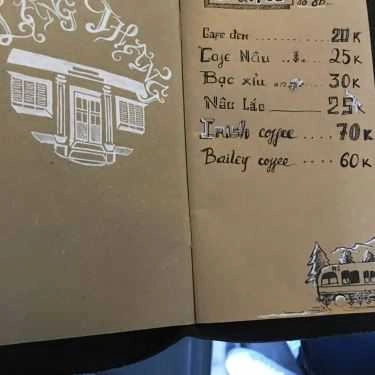 LANG THANG
Cafe đen ........ 20K
Cafe Nâu ..... 25K
Bạc xỉu ..... 30K
Nâu Lắc ———— 25K
Irish coffee .... 70K
Bailey coffee .... 60K